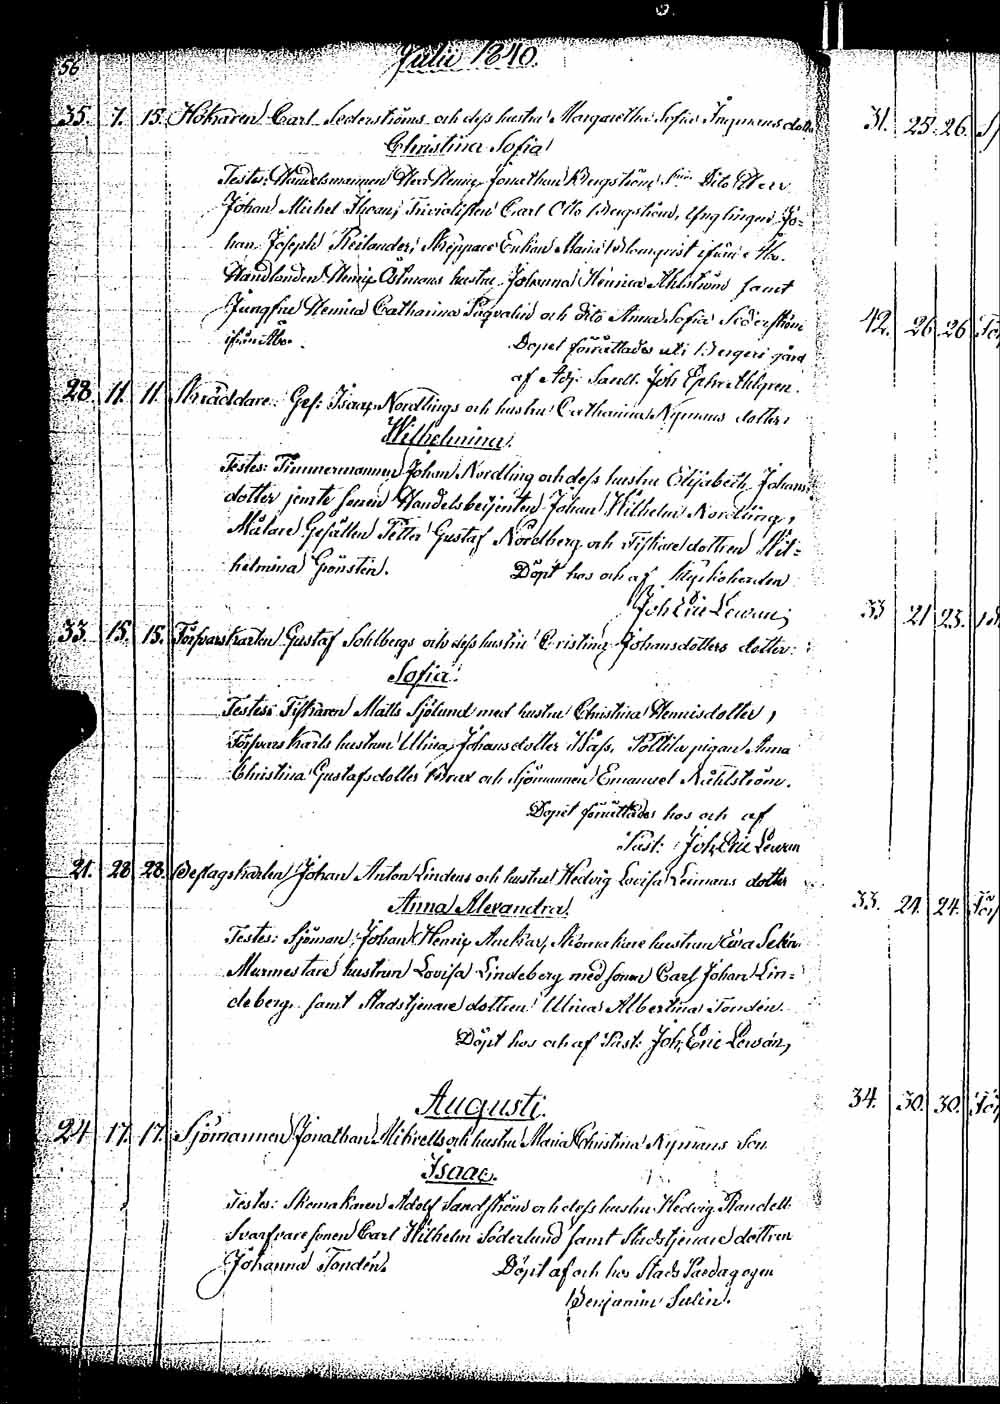 56
Julii 1840.
35. 7. 15. Hökaren Carl Sederströms och dess hustru Margaretha Sofia Ingmans dotter
Christina Sofia
Testes: Handelsmannen Herr Henric Jonathan Bergström, Dito Herr
Johan Michel Ithoan, Trivialisten Carl Otto Bergström, Ynglingen Jo-
han Joseph Reilander, Skeppare Enkan Maria Blomqvist ifrån Åbo.
Handlanden Henric Östmans hustru Johanna Henrica Ahlström samt
Jungfru Henrica Catharina Pinqvalin och dito Anna Sofia Sederström
ifrån Åbo. Dopet förrättades uti Bergers gård
af Adj: Sacell. Joh Ephr Ahlgren.
28. 11. 11. Skräddare Ges: Isaac Nordlings och hustru Catharina Nymans dotter
Wilhelmina.
Testes: Timmermannen Johan Nordling och dess hustru Elisabeth Johans
dotter jemte sonen Handelsbetjenten Johan Wilhelm Nordling,
Målare Gesällen Petter Gustaf Nordberg och Fiskare dottren Wil-
helmina Grönsten. Döpt hos och af Kyrkoherden
Joh Eric Lewan,
33. 15. 15. Försvarskarlen Gustaf Sohlbergs och dess hustru Cristina Johansdotters dotter
Sofia.
Testes: Fiskaren Matts Sjölund med hustru Christina Henricsdotter,
Försvars Karls hustrun Ulrica Johansdotter Wass, Pottila pigan Anna
Christina Gustafsdotter Brax och Sjömannen Emanuel Ruhlström.
Dopet förrättades hos och af
Past: Joh. Eric Lewan
21. 28. 28. Beslagskarlen Johan Anton Lindens och hustru Hedvig Lovisa Leimans dotter
Anna Alexandra.
Testes: Sjöman Johan Henric Ankar, Skomakare hustrun Eva Selin
Murmestare hustrun Lovisa Lindeberg med sonen Carl Johan Lin-
deberg samt Stadstjenare dottren Ulrica Albertina Tondén.
Döpt hos och af Past: Joh. Eric Lewan,
Augusti.
24 17. 17. Sjömannen Jonathan Mikvells och hustru Maria Christina Nymans Son
Isaac.
Testes: Skomakaren Adolf Sandström och dess hustru Hedvig Randell
Svarfvare sonen Carl Wilhelm Söderlund samt Stadstjenare dottren
Johanna Tondén. Döpt af och hos Stads Pædagogen
Benjamin Salin.
31. 25. 26.
42. 26 26
33 21 23.
33. 24. 24.
34. 30. 30.